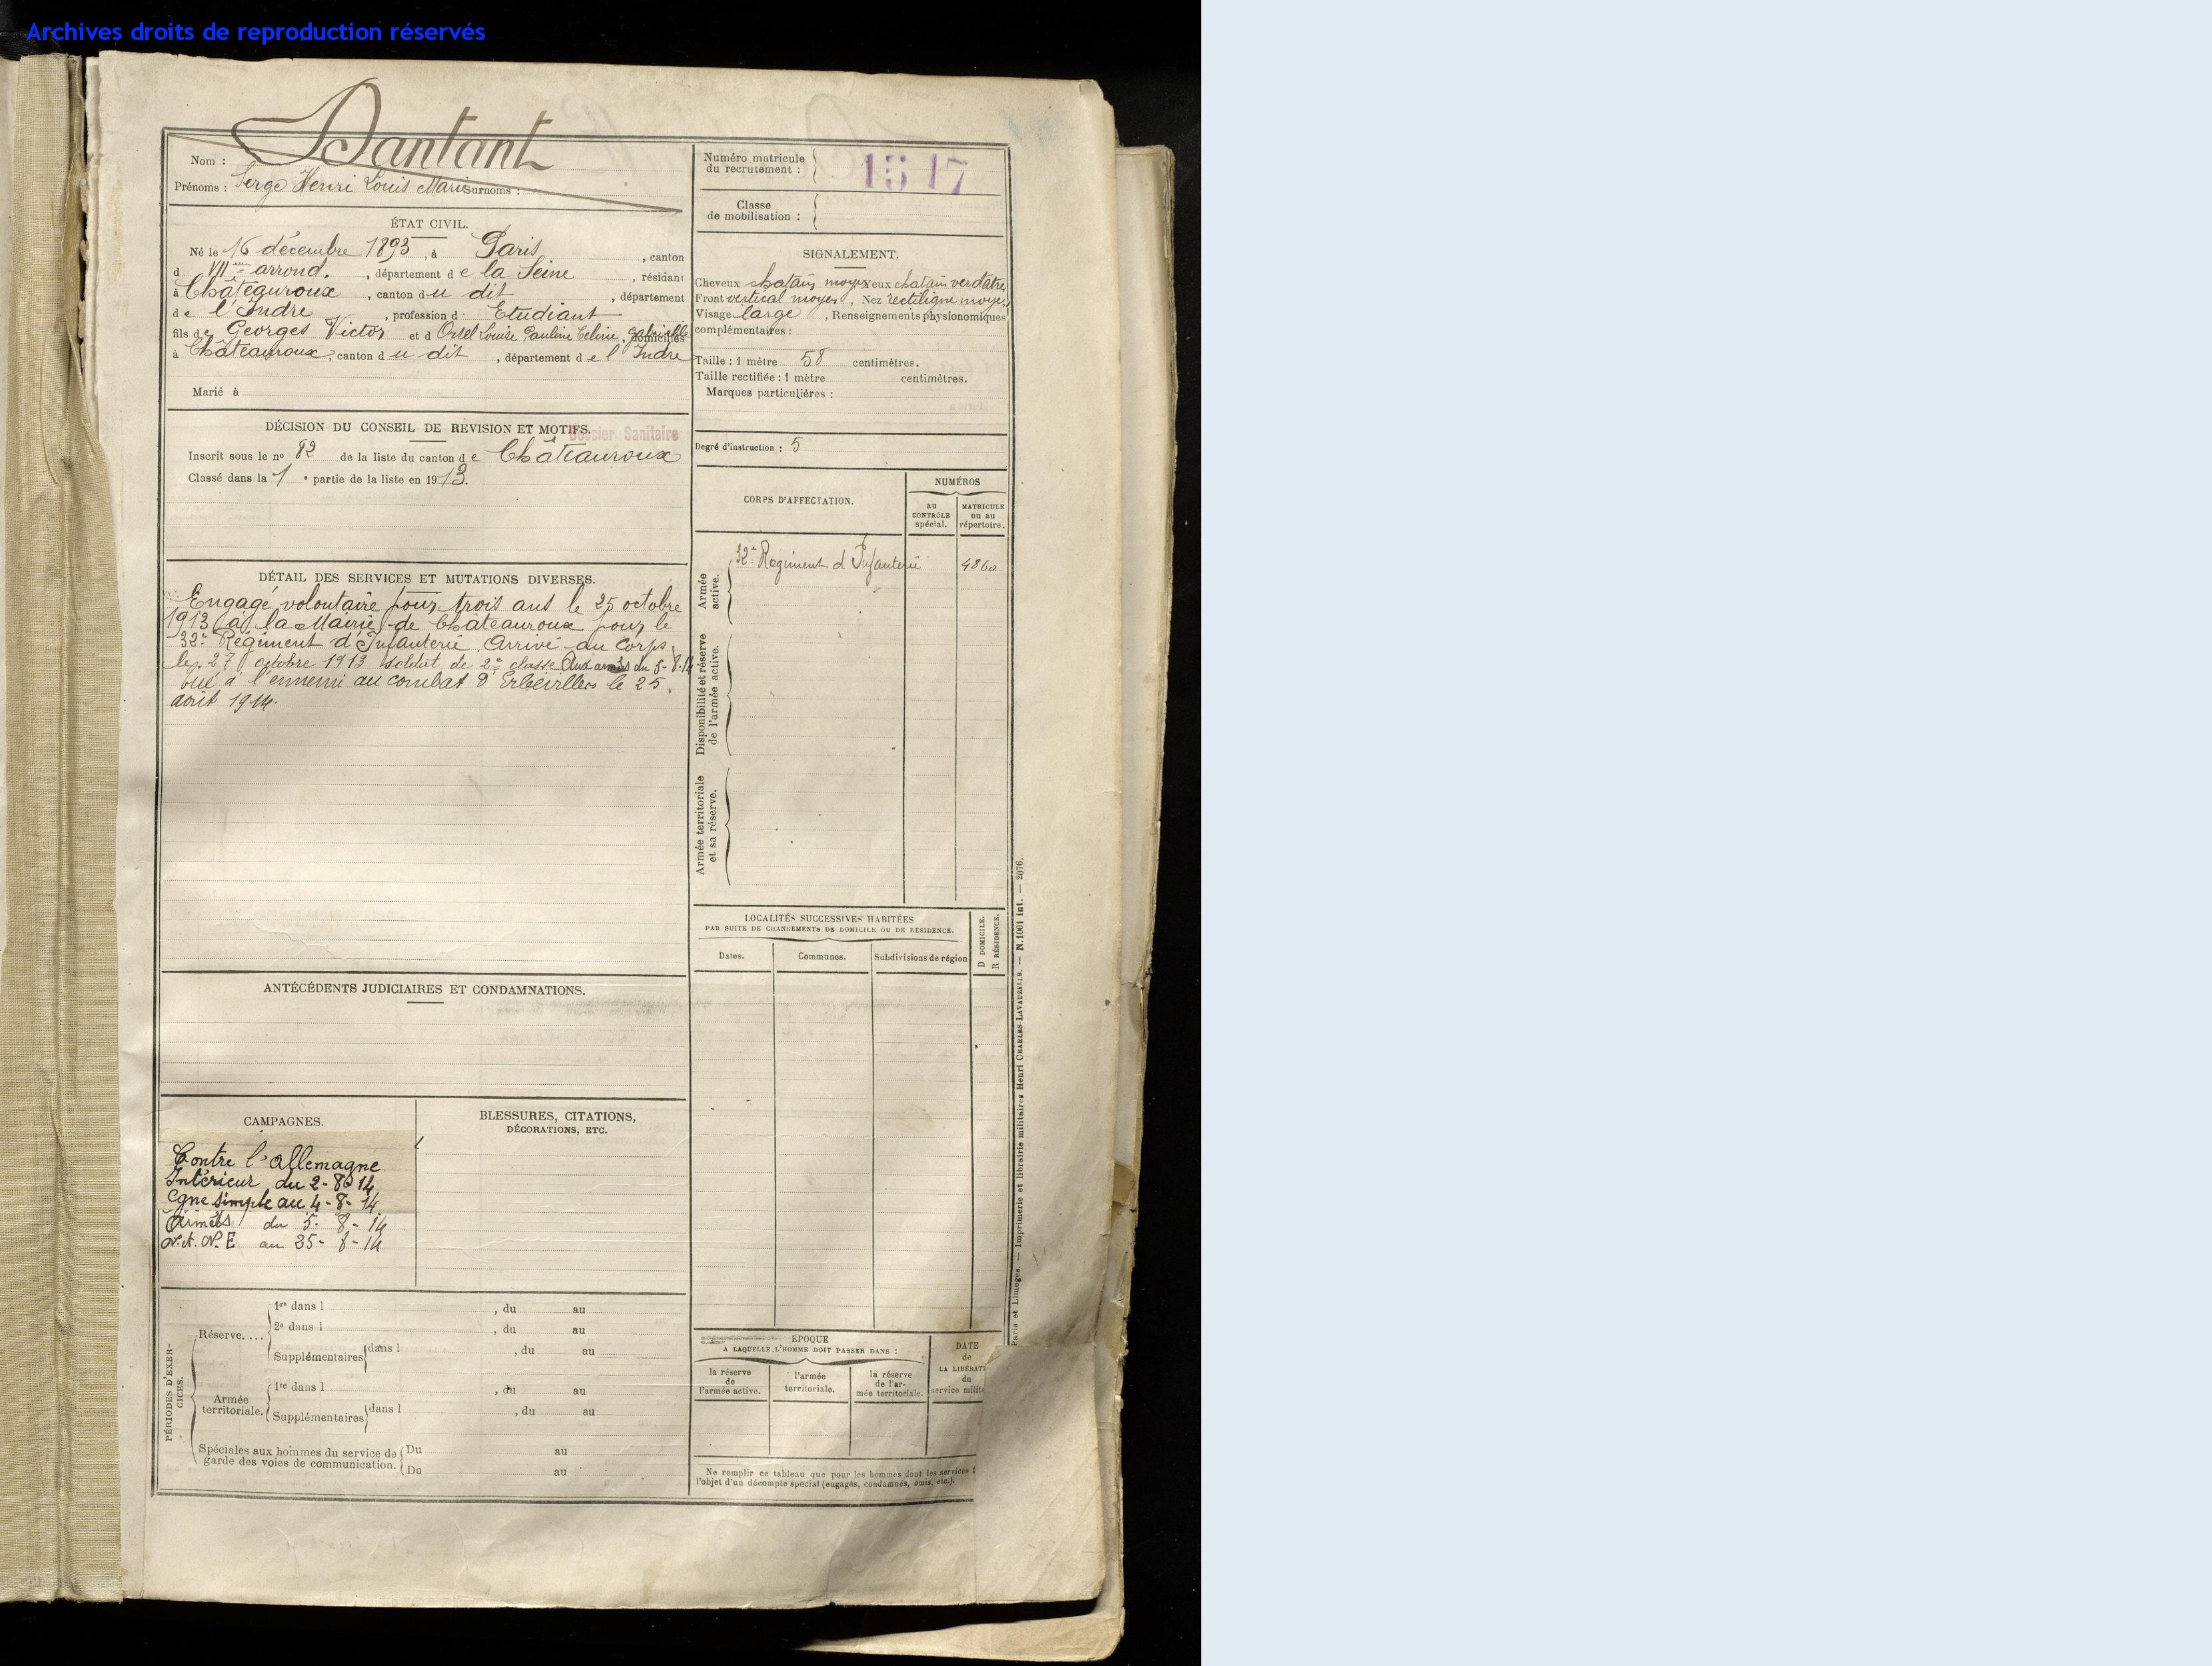 Archives droits de reproduction réservés
Nom : Dantant
Prénoms : Serge Henri Louis Marie Surnoms :
Numéro matricule
du recrutement : 1517
Classe
de mobilisation :
ÉTAT CIVIL.
Né le 16 décembre 1893, à Paris, canton
d VIIème arrond., département de la Seine, résidant
à Châteauroux, canton du dit, département
de l'Indre, profession d' Etudiant
fils de Georges Victor et d Orsel Louise Pauline Celine, Gabrielle domiciliés
à Châteauroux, canton du dit, département de l'Indre
Marié à
SIGNALEMENT.
Cheveux chatain moyen Yeux chatain verdâtre
Front vertical moyen, Nez rectiligne moyen
Visage large, Renseignements physionomiques
complémentaires :
Taille : 1 mètre 58 centimètres.
Taille rectifiée : 1 mètre centimètres.
Marques particulières :
Degré d'instruction : 5
DÉCISION DU CONSEIL DE REVISION ET MOTIFS.
Dossier Sanitaire
Inscrit sous le no 82 de la liste du canton de Châteauroux
Classé dans la 1e partie de la liste en 1913.
DÉTAIL DES SERVICES ET MUTATIONS DIVERSES.
Engagé volontaire pour trois ans le 25 octobre
1913 à la Mairie de Châteauroux pour le
32e Régiment d'Infanterie. Arrivé au Corps
le 27 octobre 1913 soldat de 2e classe Aux armées du 5-8-14
tué à l'ennemi au combat d'Erbéviller le 25
août 1914.
CORPS D'AFFECTATION.
NUMÉROS
au
CONTRÔLE
spécial.
MATRICULE
ou au
répertoire.
Armée
active.
32e Regiment d'Infanterie 4860
Disponibilité et réserve
de l'armée active.
Armée territoriale
et sa réserve.
LOCALITÉS SUCCESSIVES HABITÉES
PAR SUITE DE CHANGEMENTS DE DOMICILE OU DE RÉSIDENCE.
Dates.
Communes.
Subdivisions de région
D DOMICILE.
R RÉSIDENCE.
ANTÉCÉDENTS JUDICIAIRES ET CONDAMNATIONS.
CAMPAGNES.
Contre l'Allemagne
Intérieur du 2-8-14
Cgne simple au 4-8-14
Armées du 5-8-14
au 25-8-14
BLESSURES, CITATIONS,
DÉCORATIONS, ETC.
PÉRIODES D'EXER-
CICES.
Réserve....
1re dans l , du au
2e dans l , du au
Supplémentaires dans l , du au
Armée
territoriale.
1re dans l , du au
Supplémentaires dans l , du au
Spéciales aux hommes du service de
garde des voies de communication.
Du au
Du au
EPOQUE
A LAQUELLE L'HOMME DOIT PASSER DANS :
la réserve
de
l'armée active.
l'armée
territoriale.
la réserve
de l'ar-
mée territoriale.
DATE
de
LA LIBÉRAT
du
service milit
Ne remplir ce tableau que pour les hommes dont les services
l'objet d'un décompte spécial (engagés, condamnés, omis, etc.).
Paris et Limoges. — Imprimerie et librairie militaires Henri CHARLES-LAVAUZELLE. — N. 1001 int. — 2076.